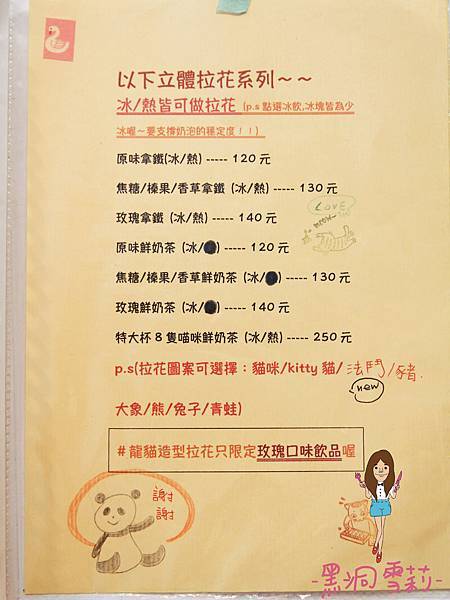 以下立體拉花系列～～
冰/熱皆可做拉花 (p.s 點選冰飲,冰塊皆為少
冰喔～要支撐奶泡的穩定度！！)
原味拿鐵(冰/熱) ----- 120 元
焦糖/榛果/香草拿鐵 (冰/熱) ----- 130 元
玫瑰拿鐵 (冰/熱) ----- 140 元
LOVE
原味鮮奶茶 (冰/) ----- 120 元
焦糖/榛果/香草鮮奶茶 (冰/) ----- 130 元
玫瑰鮮奶茶 (冰/) ----- 140 元
特大杯 8 隻喵咪鮮奶茶 (冰/熱) ----- 250 元
p.s(拉花圖案可選擇：貓咪/kitty 貓/法鬥/豬.
new
大象/熊/兔子/青蛙)
#龍貓造型拉花只限定玫瑰口味飲品喔
謝
謝
-黑洞雪莉-